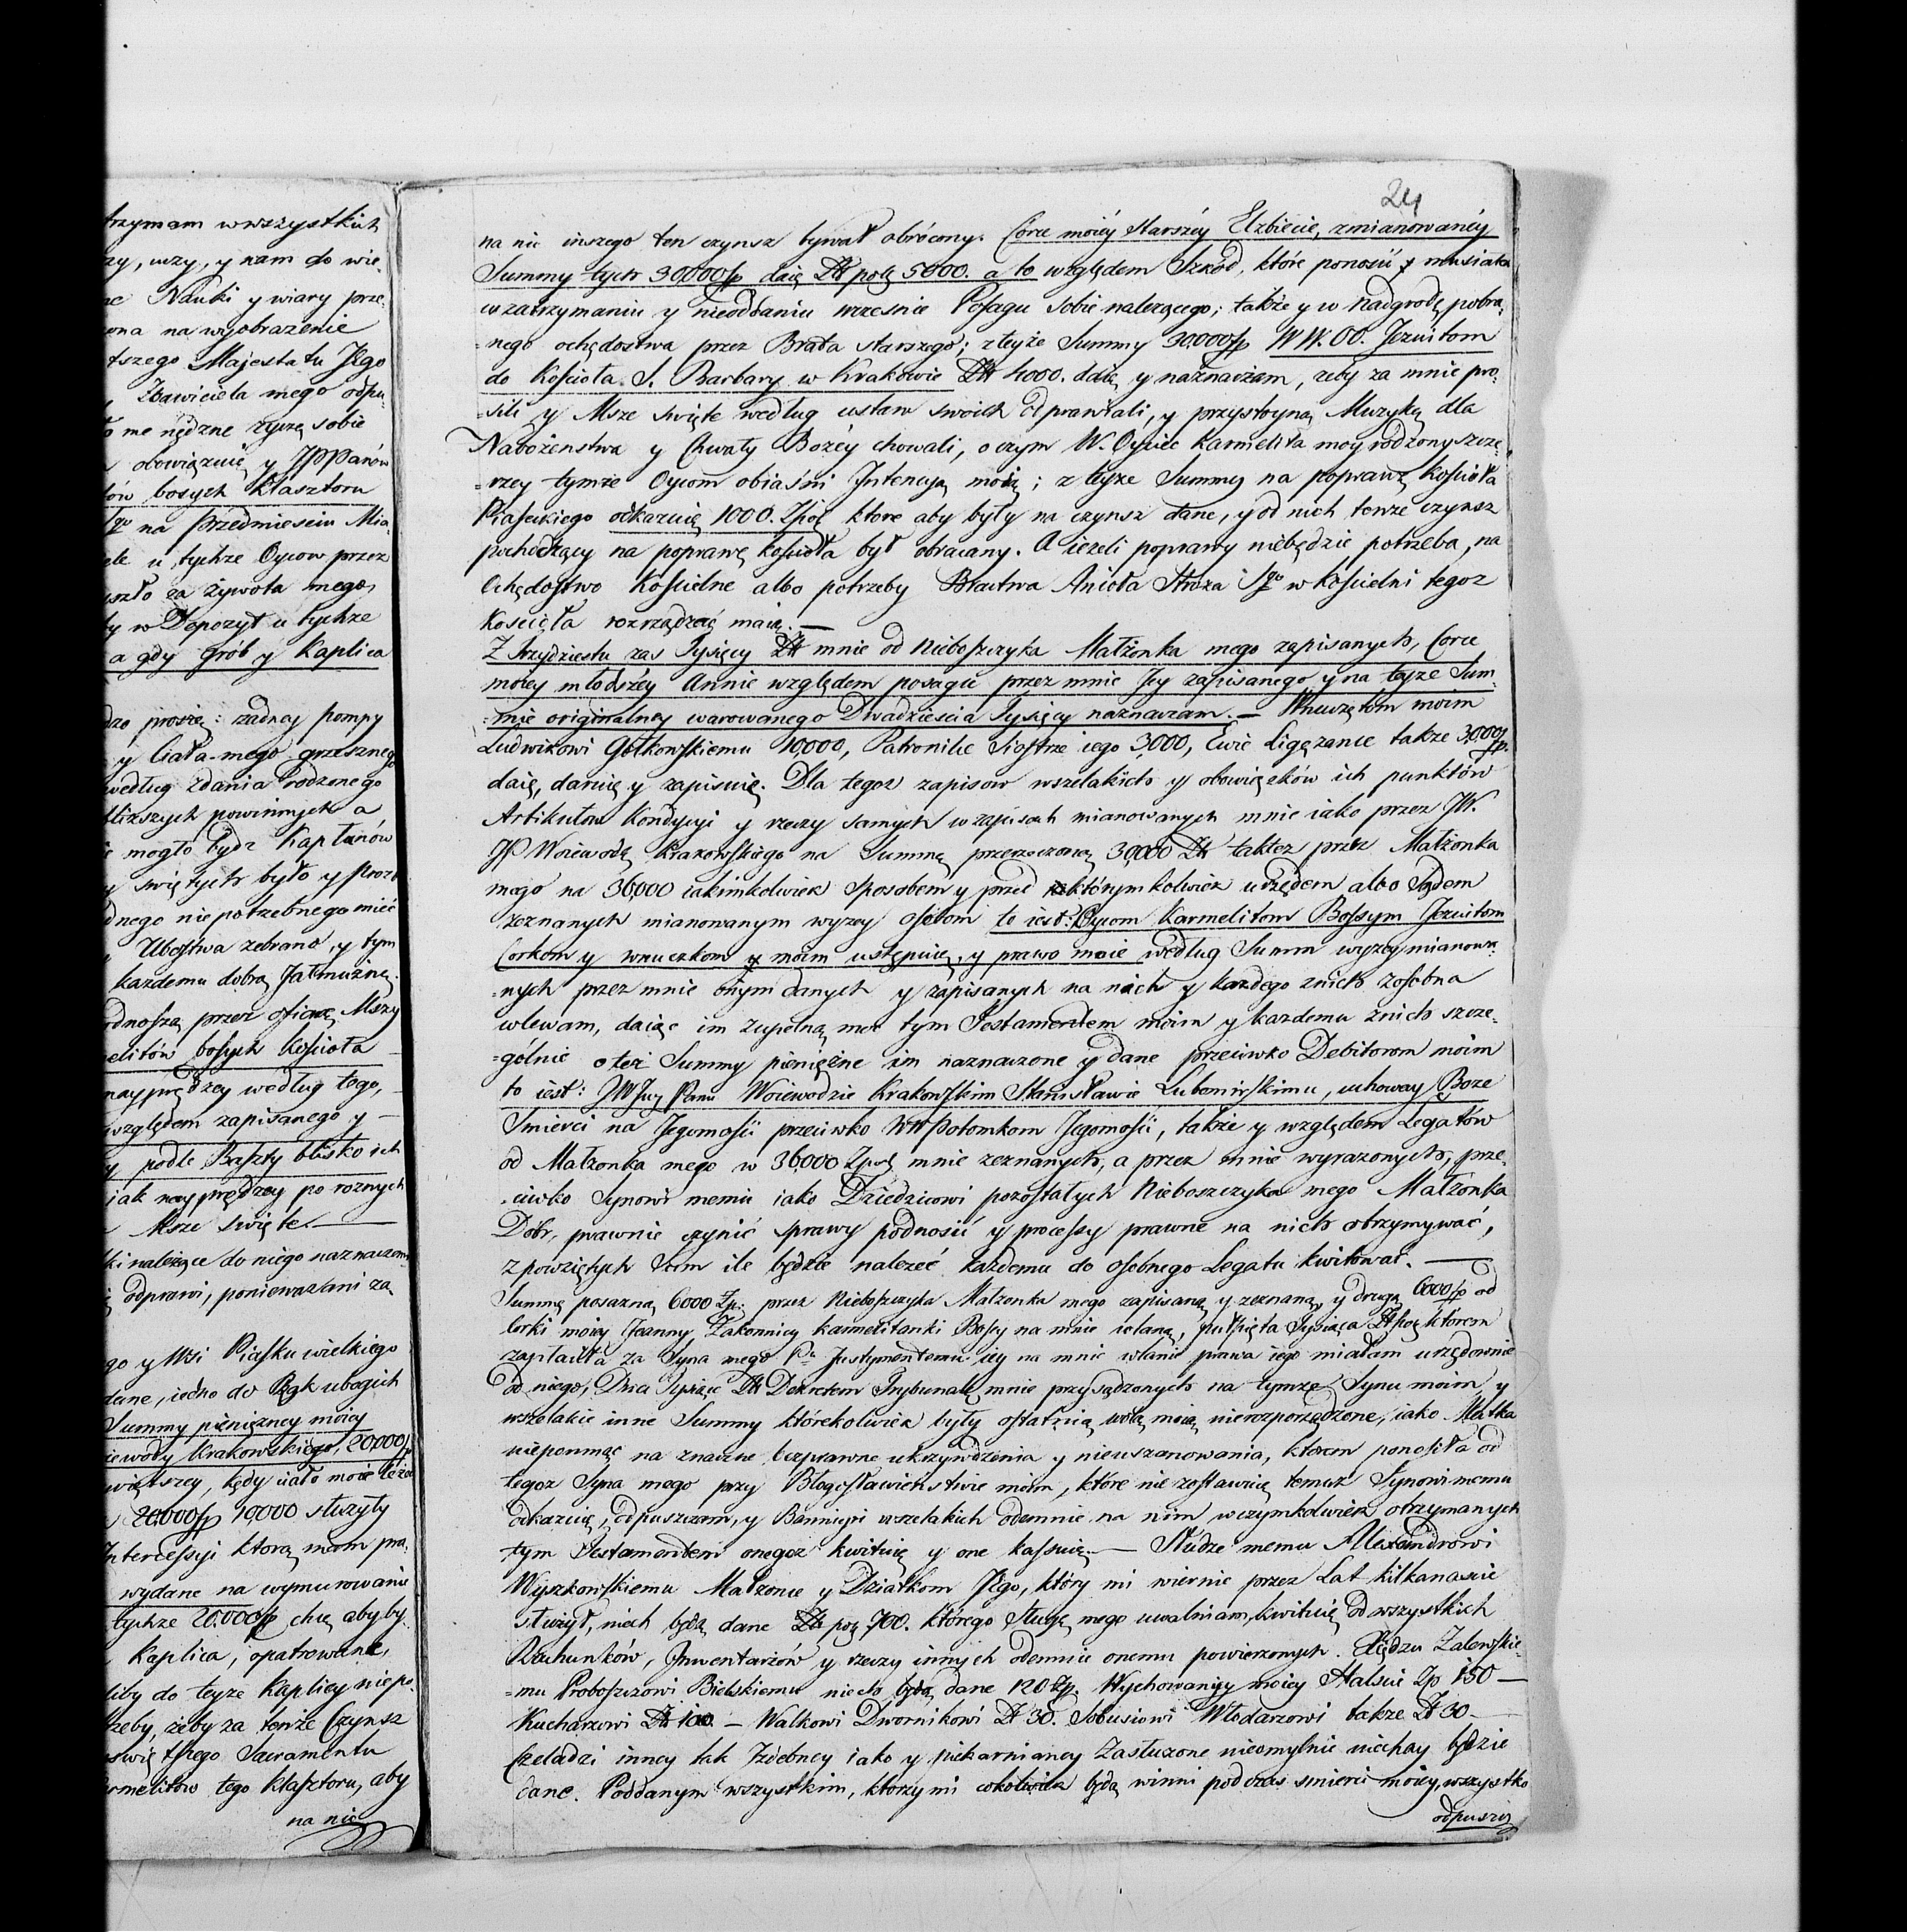 trzymam wwszystkich
zy, uczy, y nam do wie-
ne Nauki y wiary prze-
ona na wyobrazenie
tszego Majestatu Jego
Zbawiciela mego odpu-
me nędzne życzę sobie
obowiązuię y JPPanów
ów bosych Klasztoru
Sgo na przedmiesciu Mia-
ele u tychże Oycow przez
szło za żywota mego,
ty w Depozyt u tychże
a gdy Grób y Kaplica
dzo proszę: zadney pompy
y Ciała mego grzesznego
według zdania Rodzonego
bliższych powinnych a
mogło bydz Kapłanów
y swiętych było y Prozb
dnego niepotrzebnego mieć
Ubostwa zebrano, y tym
kazdemu dobrą Jałmużną.
odnoszą przez ofiarę Mszy
elitów bosych Kościoła
nayprędzey według tego, —
względem zapisanego y —
y podle Baszty blisko ich
iak nayprędzey po roznych
Msze swięte. —
ki należące do niego naznaczom
odprawi, ponieważ ani za
go y Wsi Piasku wielkiego
dane, iedno do Rąk ubogich
Summy pieniężney moiey
iewody Krakowskiego, 20000 fp
większey, kędy ciało moie leże
20.000 fp 10,000 służyły
Intercessyi ktorą mam pra-
wydane na wymurowanie
tychże 20.000 fp chcę aby by-
Kaplica, opatrowane,
liby do teyże Kaplicy niepo-
trzeby, żeby za tenże Czynsz
swiętszego Sacramentu
rmelitów tego Klasztoru, aby
na nic
24
na nic inszego ten czynsz bywał obrócony. Corce moiéy starszéy Elzbiecie, zmianowanéy
Summy tych 30,000 fp daię Zł polę 5000. a to względem Szkód, które ponosić musiała
w zatrzymaniu y nieoddaniu wczesnie Posagu sobie należącego; także y w nadgrodę pobra-
=nego ochędostwa przez Brata starszego; z teyże Summy 30.000 fp WW. OO. Jezuitom
do Kościoła S. Barbary w Krakowie Zł 4000. daię y naznaczam, żeby za mnie pro-
=sili y Msze swięte według ustaw swoich odprawiali, y przystoyną Muzyką dla
Nabożenstwa y Chwały Bożéy chowali, o czym W. Oyciec Karmelita moy rodzony szcze-
=rzey tymże Oycom obiaśni Intencyą moię; z teyże Summy na poprawę Kościoła
Piaseckiego odkazuię 1000. Zpol ktore aby były na czynsz dane, y od nich tenże czynsz
pochodzący na poprawę kościoła był obracany. A ieżeli poprawy niebędzie potrzeba, na
Ochędostwo Kościelne albo potrzeby Bractwa Anioła Stroza Sgo w kościelni tegoz
Kościoła rozrządzać maią. —
Z Trzydziestu zas Tysięcy Zł mnie od Nieboszczyka Małżonka mego zapisanych, Corce
moiey młodszéy Annie względem posagu przez mnie Jey zapisanego y na teyże Sum-
=mie originalney warowanego Dwadziescia Tysięcy naznaczam. — Wnuczętom moim
Ludwikowi Gołkowskiemu 10,000, Patronilie Siostrze iego 3,000, Ewie Ligęzance także 3,000 fp
daię, daruię y zapisuię. Dla tegoz zapisow wszelakich y obowiązków ich punktów
Artikułow Kondycyi y rzeczy samych w zapisach mianowanych mnie iako przez JW.
JP Woiewodę Krakowskiego na Summę przerzeczoną 30,000 Zł takżez przez Małżonka
mego na 36,000 iakimkolwiek sposobem y przed którymkolwiek urzędem albo Sądem
zeznanych mianowanym wyzey osobom to iest: Oycom Karmelitom Bossym Jezuitom
Corkom y wnuczkom moim ustępuię, y prawo moie według Summ wyzey mianowa-
=nych przez mnie onym danych y zapisanych na nich y kazdego znich zosobna
wlewam, daiąc im zupełną moc tym Testamentem moim y kazdemu znich szcze-
=gólnie o też Summy pieniężne im naznaczone y dane przeciwko Debitorom moim
to iest: JW Jmci Panu Woiewodzie Krakowskim Stanisławie Lubomirskimu, uchoway Boże
Smierci na Jegomości przeciwko WW Potomkom Jegomości, także y względem Legatów
od Małżonka mego w 36,000 Zpol mnie zeznanych, a przez mnie wyrazonych, prze-
=ciwko Synowi memu iako Dziedzicowi pozostałych Nieboszczyka mego Małżonka
Dóbr, prawnie czynić sprawy podnosić y processy prawne na nich otrzymywać,
z powziętych Summ ile będzie nalezeć kazdemu do osobnego Legatu kwitować. —
Summę posazną 6000 Zp. przez Nieboszczyka Małżonka mego zapisaną y zeznaną, y drugą 6000 fp od
Corki moiey Joanny, Zakonnicy karmelitanki Bosey na mnie wlaną, Tysiąca Zł ktorem
zapłaciła za Syna mego iey na mnie wlanie prawa iego miałam urzędownie
od niego, Dwa Tysiące Zł Dekretem Trybunalu mnie przysądzonych na tymże Synu moim y
wszelakie inne Summy którekolwiek były ostatnią wolą moią nierozporządzone, iako Matka
niepomniąc na znaczne bezprawne ukrzywdzenia y nieuszanowania, ktorem ponosiła od
tegoz Syna mego przy Błogosławieństwie moim, które nie zostawuię temuz Synowi memu
odkazuię, odpuszczam, y Bannicyi wszelakich odemnie na nim wczymkolwiek otrzymanych
tym Testamentem onegoz kwituię y one kassuię. — Słudze memu Alexandrowi
Wyszkowskiemu Małżonce y Dziatkom Jego, który mi wiernie przez Lat kilkanascie
słuzył, niech będą dane Zł poq 700. którego sługę mego uwalniam, kwituię od wszystkich
Rachunków, Inwentarzów y rzeczy innych odemnie onemu powierzonych. Xiędzu Zalewskie-
=mu Proboszczowi Bielskiemu niech będą dane 120 Zp. Wychowanicy moiey Halscie Zp 150 —
Kucharzowi Zł 100. — Walkowi Dwornikowi Zł 30. Sobusiowi Włodarzowi takze Zł 30 —
Czeladzi inney tak Izdebney iako y piekarnianey Zasłuzone nieomylnie niechay będzie
dane. Poddanym wszystkim, ktorzy mi cokolwiek będą winni podczas smierci moiey, wszystko
odpuszcz